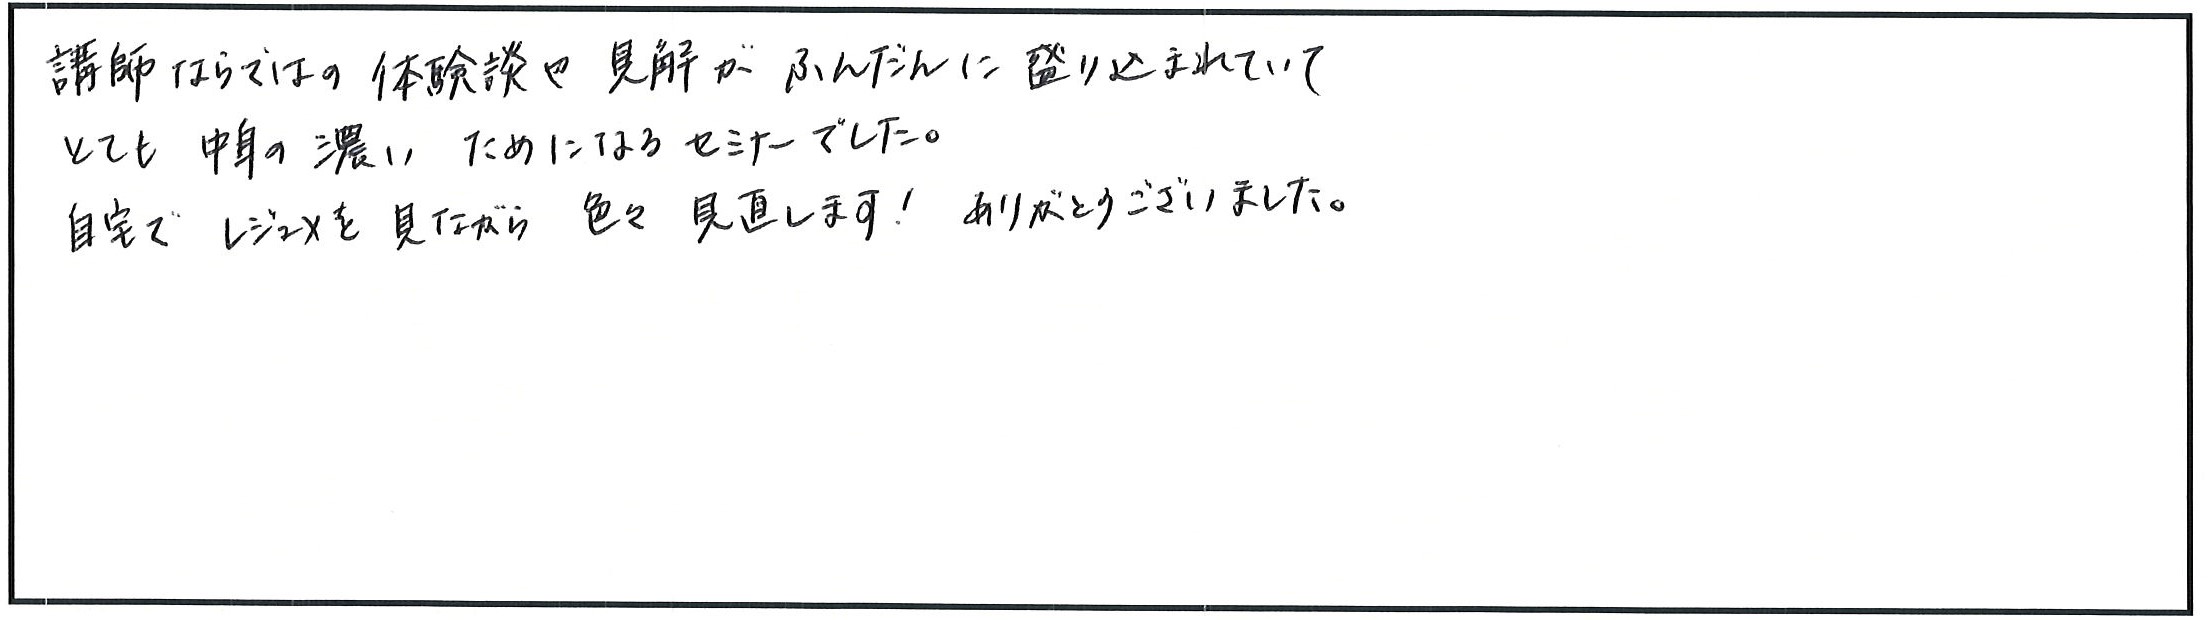 講師ならではの体験談や見解がふんだんに盛り込まれていて
とても中身の濃いためになるセミナーでした。
自宅でレジュメを見ながら色々見直します！ありがとうございました。